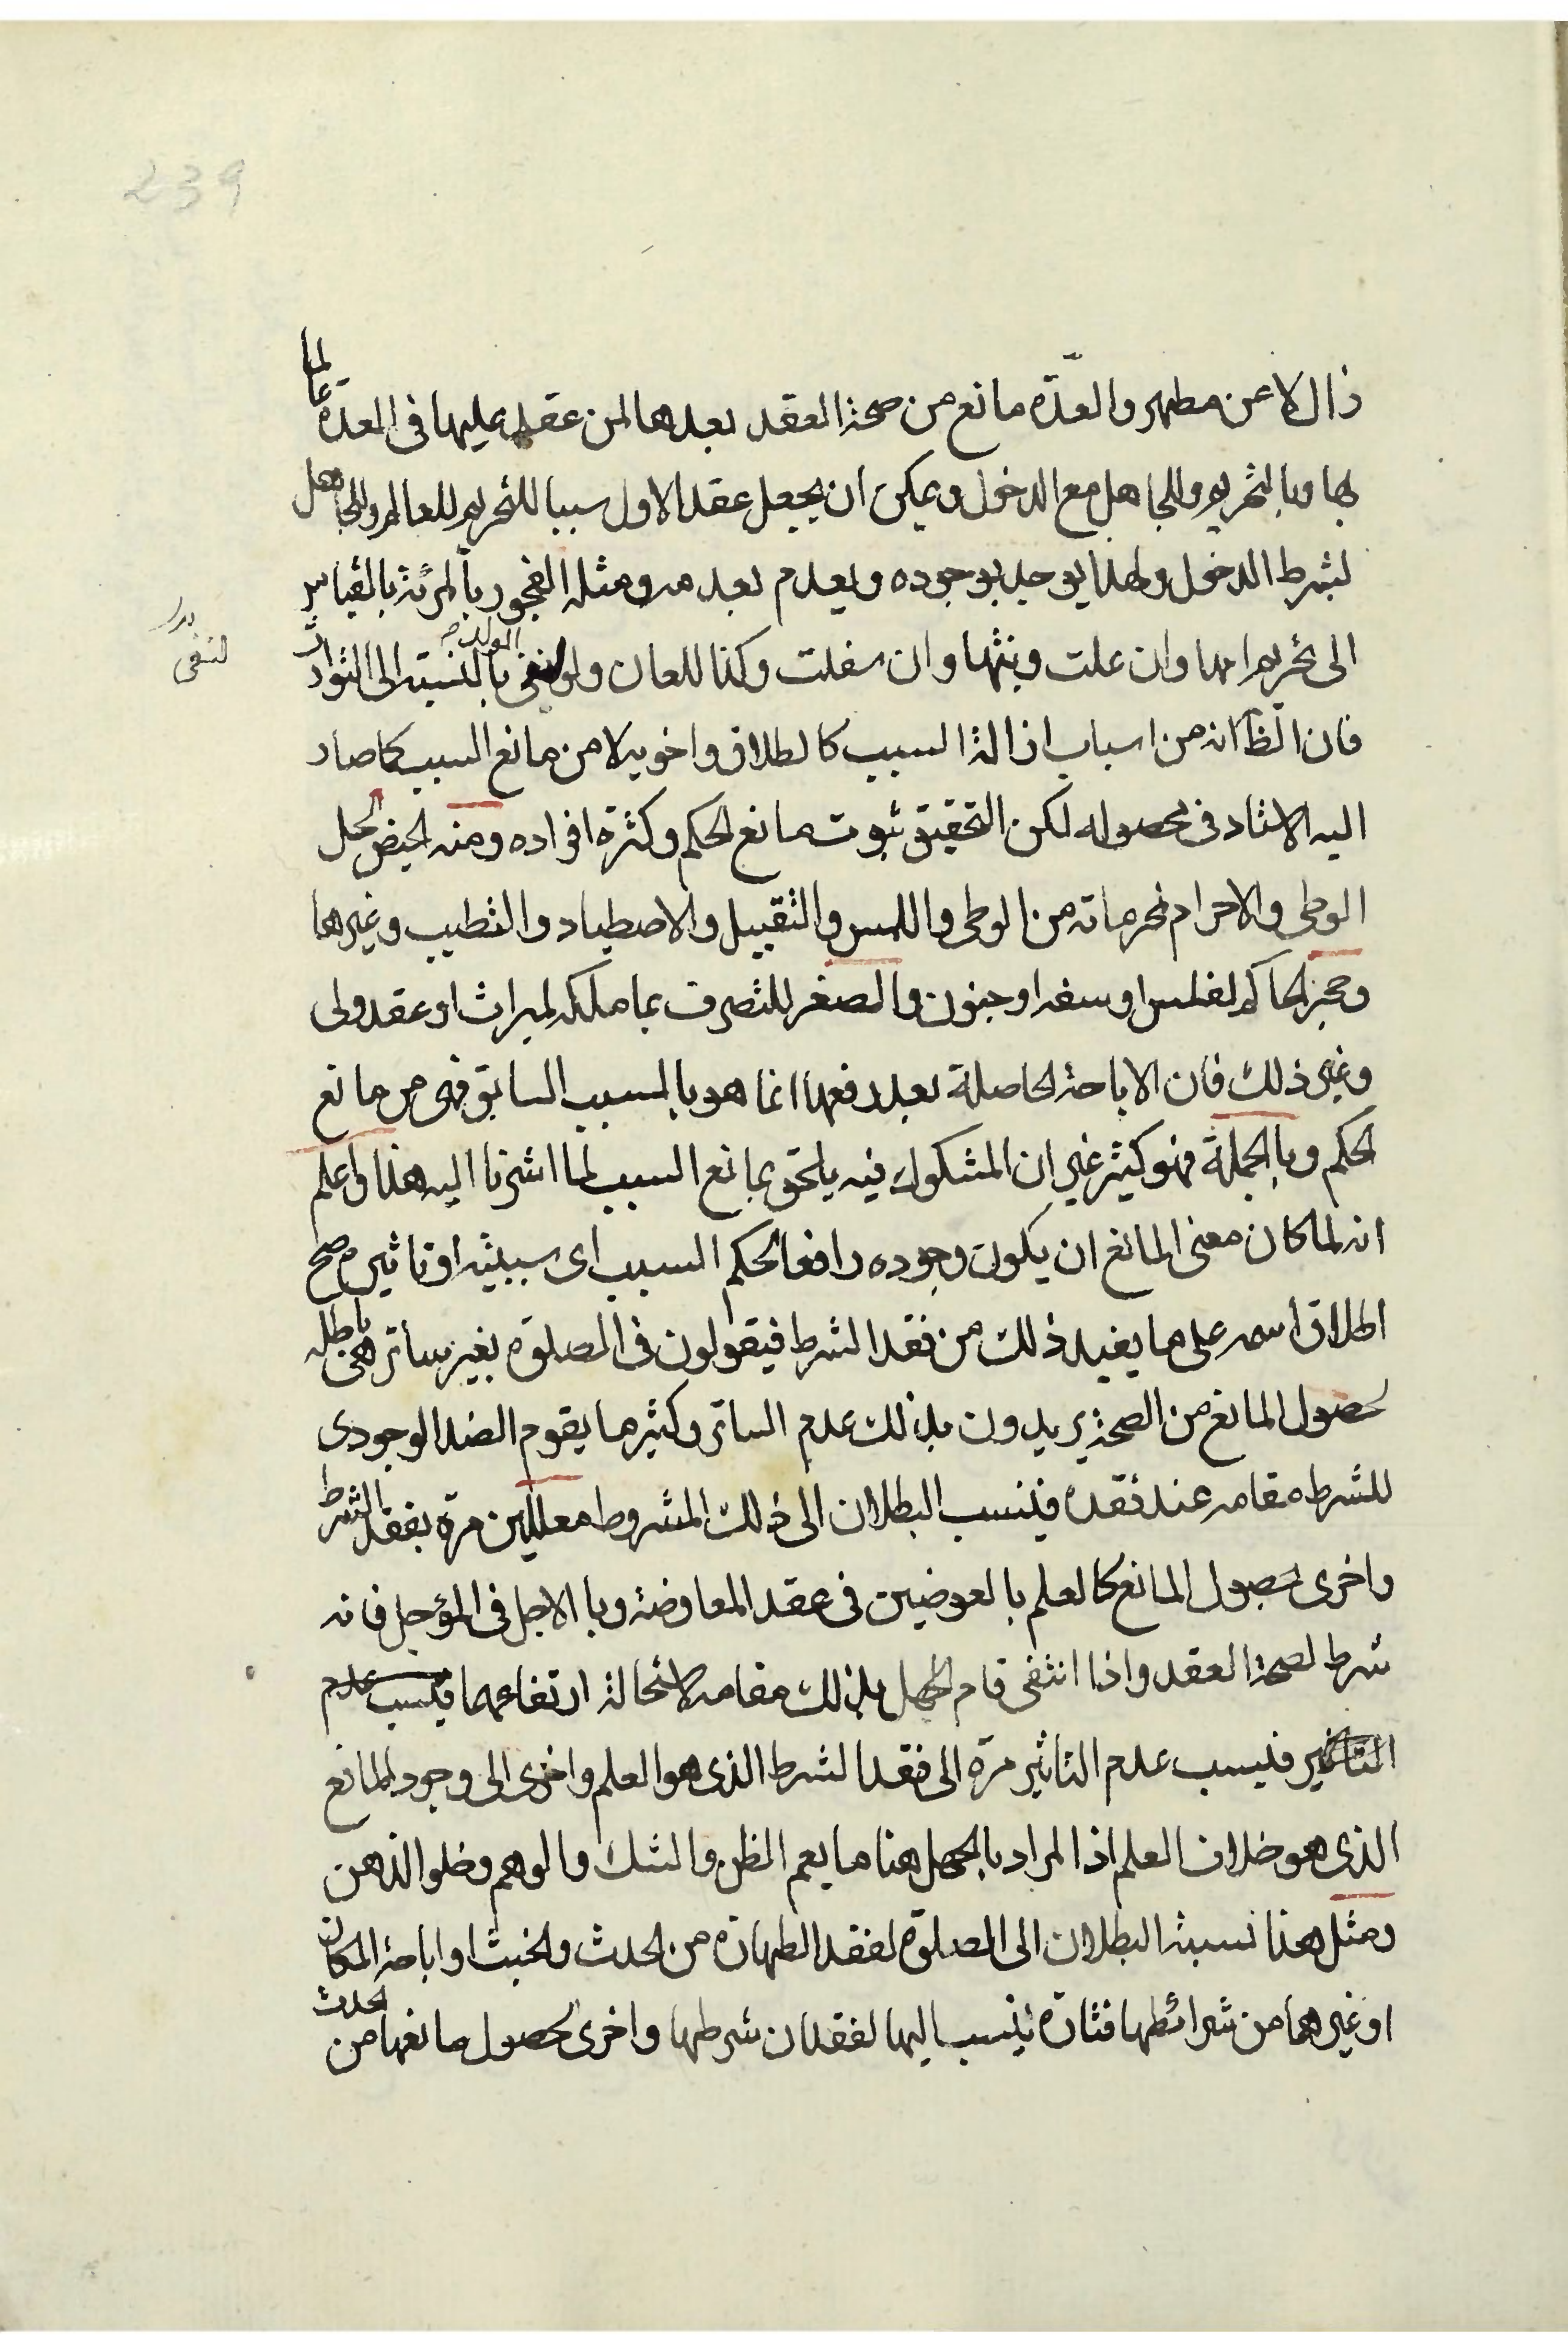 239
زال لا عن مطهر والعدّة مانع من صحة العقد بعدها لمن عقد عليها فى العدة عالما
بها وبالتحريم وللجاهل مع الدخول ويمكن ان يجعل عقد الاول سببا للتحريم للعالم وللجاهل
بشرط الدخول ولهذا يوجد بوجوده ويعدم بعدمه ومثله الفجور بالمرئة بالقياس
الى تحريم امها وان علت وبنتها وان سفلت وكذا اللعان ولو لنفى الولد بالنسبة الى التوارث
لنفى
فان الظ انه من اسباب ازالة السبب كالطلاق واخويه لا من مانع السبب كما صار
اليه الاستاد فى محصوله لكن التحقيق ثبوت مانع الحكم وكثرة افراده ومنه الحيض لحل
الوطى والاحرام لمحرماته من الوطى واللمس والتقبيل والاصطياد والتطيب وغيرها
وحجر الحاكم لفلس او سفه او جنون والصغر للتصرف بما ملكه لميراث او عقد ولى
وغير ذلك فان الاباحة الحاصلة بعد رفعها انما هو بالسبب السابق فهى من مانع
الحكم وبالجملة فهو كثير غير ان المشكوك فيه يلحق بمانع السبب لما اشرنا اليه هذا واعلم
انه لما كان معنى المانع ان يكون وجوده رافعا لحكم السبب اى سببيته او تاثيره صح
اطلاق اسمه على ما يفيد ذلك من فقد الشرط فيقولون فى الصلوة بغير ساتر هى باطله
لحصول المانع من الصحة يريدون بذلك عدم الساتر وكثيرما يقوم الضد الوجودى
للشرط مقامه عند فقده فينسب البطلان الى ذلك المشروط معللين مرة بفقد الشرط
واخرى بحصول المانع كالعلم بالعوضين فى عقد المعاوضة وبالاجل فى المؤجل فانه
شرط لصحة العقد واذا انتفى قام الجهل بذلك مقامه لاستحالة ارتفاعهما فينسب عدم
التاثير فينسب عدم التاثير مرّة الى فقد الشرط الذى هو العلم واخرى الى وجود المانع
الذى هو خلاف العلم اذ المراد بالجهل هنا ما يعم الظن والشك والوهم وخلو الذهن
ومثل هذا نسبة البطلان الى الصلوة لفقد الطهارة من الحدث والخبث او اباحة المكان
او غيرهما من شرائطها فتارة ينسب اليها لفقدان شرطها واخرى لحصول مانعها من الحدث